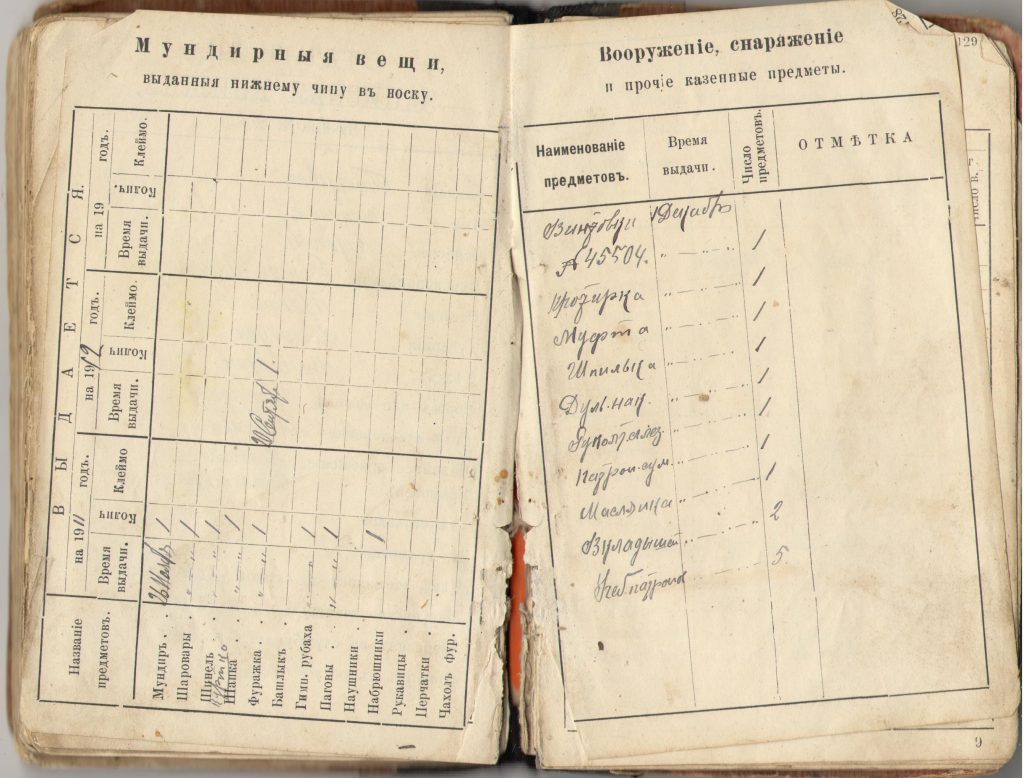 Мундирныя вещи,
выданныя нижнему чину въ носку.
Названіе предметовъ.
ВЫДАЕТСЯ
на 1911 годъ.
на 1912 годъ.
на 19 годъ.
Время выдачи.
Колич.
Клеймо
Время выдачи.
Колич.
Клеймо.
Время выдачи.
Колич.
Клеймо.
Мундиръ . . 26 1
Шаровары . „ — „ 1
Шинель „ — „ 1
куртка
Шапка . . „ — „ 1
Фуражка. . „ — „ 1 1.
Башлыкъ .
Гимн. рубаха „ — „ 1
Пагоны . . „ — „ 1
Наушники .
Набрюшники 1
Рукавицы .
Перчатки .
Чахолъ фур.
Вооруженіе, снаряженіе
и прочіе казенные предметы.
Наименованіе предметовъ.
Время выдачи.
Число предметовъ.
ОТМѢТКА
Винтовки 1 Декабр
№ 45504. „ — „ 1
Протирка „ — „ 1
Муфта „ — „ 1
Шпилька „ — „ 1
Дул. нак. „ — „ 1
„ — „ 1
Патрон. сум. „ — „ 1
Маслянка „ — „ 1
„ — „ 2
Учеб патронов „ — „ 5.
9
129
28